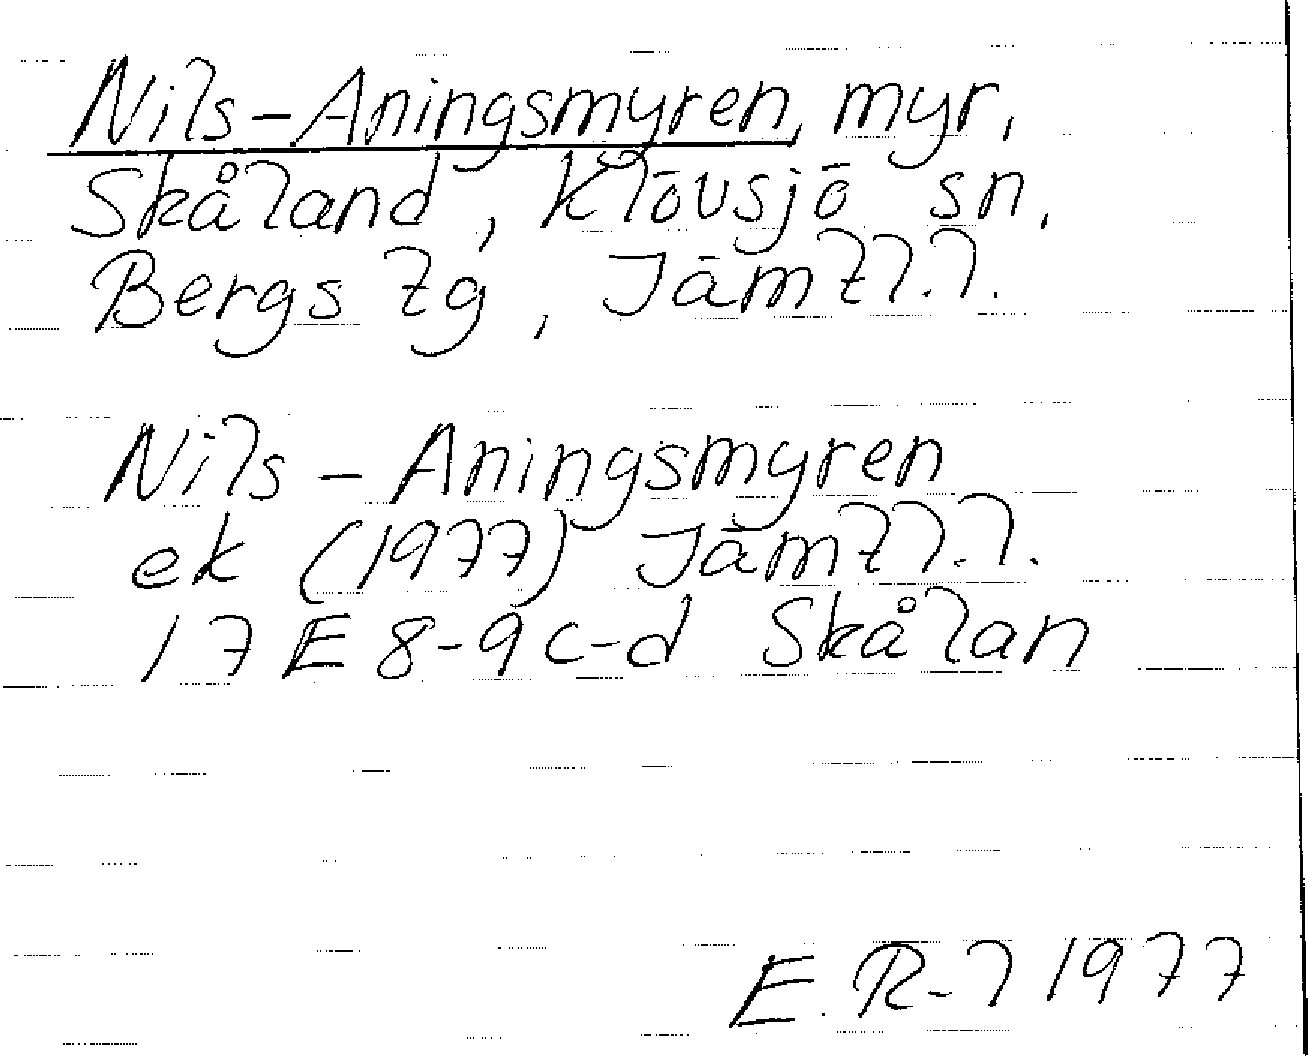 Nils-Aningsmyren, myr,
Skåland, Klövsjö sn,
Bergs tg, Jämtl.l.
Nils-Aningsmyren
ek (1977) Jämtl.l.
17E 8-9 c-d Skålan
E. R-l 1977